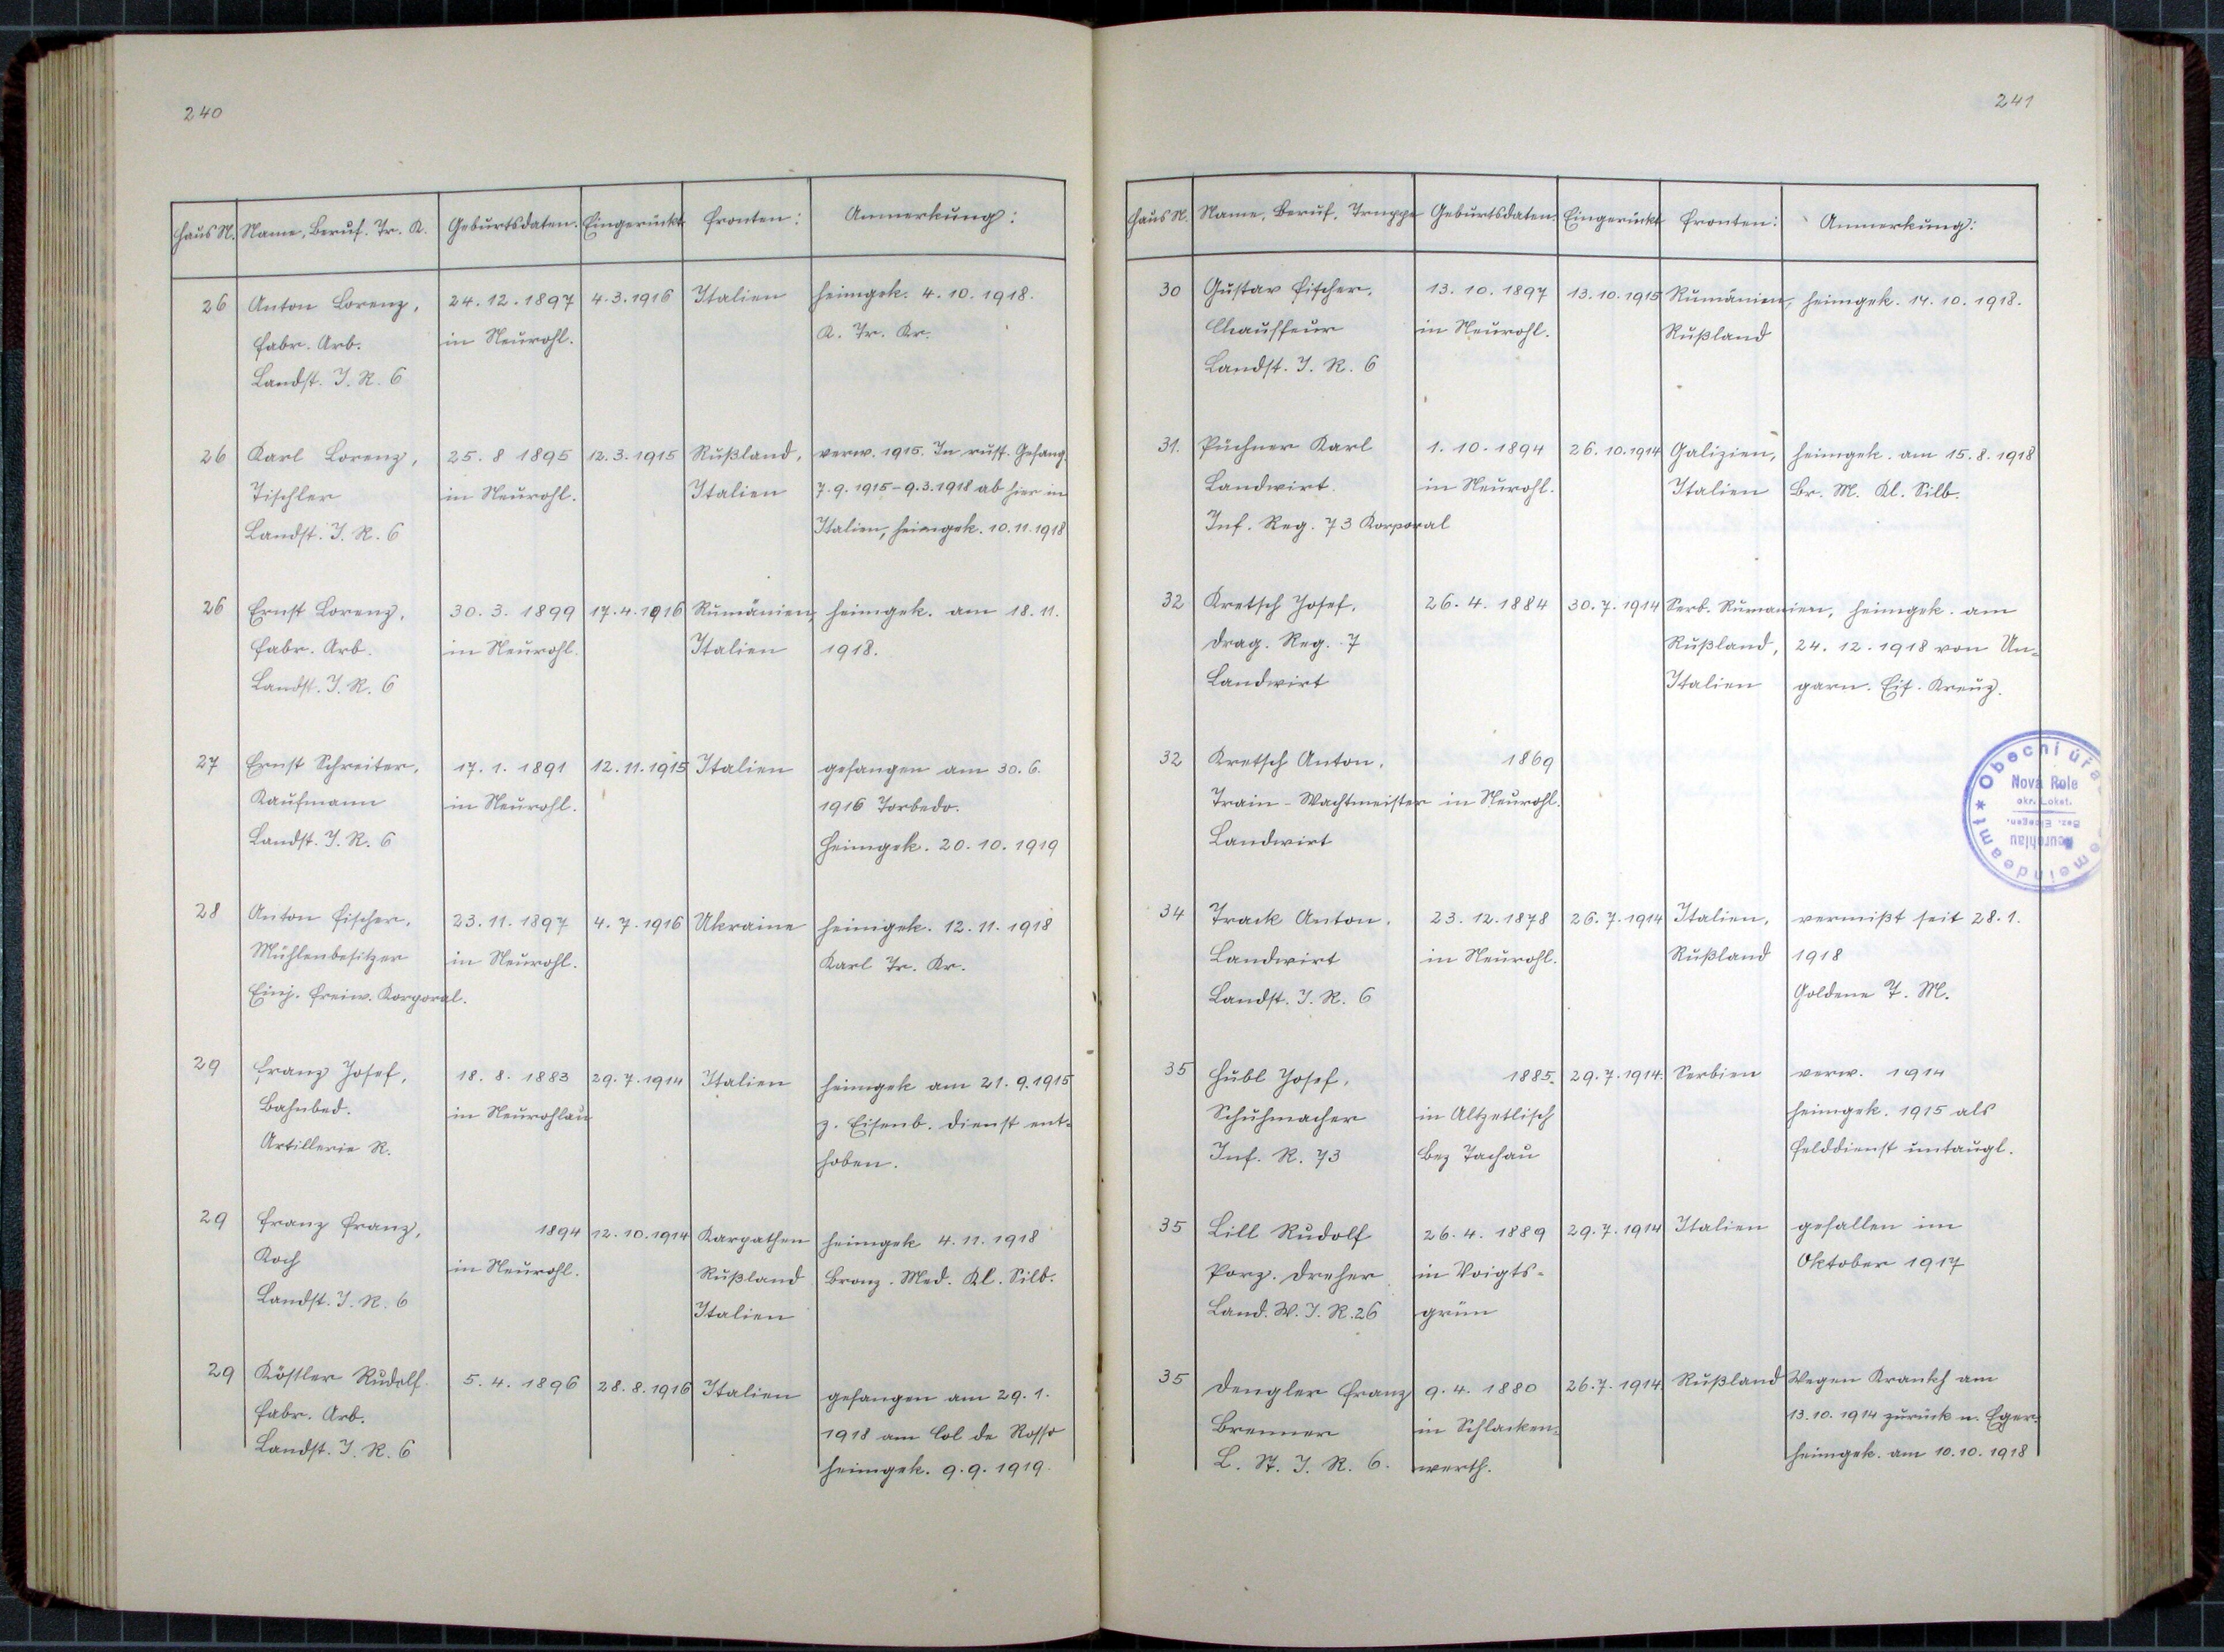 240
Haus N. Name, Beruf. Tr. K. Geburtsdaten. Eingerückt. Fronten: Anmerkung:
26 Anton Lorenz, 24.12.1897 4.3.1916 Italien heimgek. 4.10.1918.
Fabr. Arb. in Neurohl. K. Tr. Kr.
Landst. I. R. 6
26 Karl Lorenz, 25.8 1895 12.3.1915 Rußland, verw. 1915. In russ. Gefang.
Tischler in Neurohl. Italien 7.9.1915-9.3.1918 ab hier in
Landst. I. R. 6 Italien, heimgek. 10.11.1918
26 Ernst Lorenz, 30.3.1899 17.4.1916 Rumänien, heimgek. am 18.11.
Fabr. Arb. in Neurohl. Italien 1918.
Landst. I. R. 6
27 Ernst Schreiter, 17.1.1891 12.11.1915 Italien gefangen am 30.6.
Kaufmann in Neurohl. 1916 Torbedo.
Landst. I. R. 6 Heimgek. 20.10.1919
28 Anton Fischer, 23.11.1897 4.7.1916 Ukraine heimgek. 12.11.1918
Mühlenbesitzer in Neurohl. Karl Tr. Kr.
Einj. freiw. Korporal.
29 Franz Josef, 18.8.1883 29.7.1914 Italien heimgek am 21.9.1915
Bahnbed. in Neurohlau z. Eisenb. Dienst ent-
Artillerie R. hoben.
29 Franz Franz, 1894 12.10.1914 Karpathen heimgek 4.11.1918
Koch in Neurohl. Rußland Bronz. Med. Kl. Silb.
Landst. I. R. 6 Italien
29 Köstler Rudolf. 5.4.1896 28.8.1916 Italien gefangen am 29.1.
Fabr. Arb. 1918 am Col de Rosso
Landst. I. R. 6 heimgek. 9.9.1919.
241
Haus N. Name, Beruf. Truppe Geburtsdaten. Eingerückt Fronten: Anmerkung:
30 Gustav Fischer, 13.10.1897 13.10.1915 Rumänien, heimgek. 14.10.1918.
Chauffeur in Neurohl. Rußland
Landst. I. R. 6
31. Püchner Karl 1.10.1894 26.10.1914 Galizien, heimgek. am 15.8.1918
Landwirt in Neurohl. Italien Br. M. Kl. Silb.
Inf. Reg. 73 Korporal
32 Kretsch Josef, 26.4.1884 30.7.1914 Serb. Rumanien, heimgek. am
Drag. Reg. 7 Rußland, 24.12.1918 von Un-
Landwirt Italien garn. Eis. Kreuz.
32 Kretsch Anton, 1869
Train-Wachtmeister in Neurohl.
Landwirt
Obecní úřa
Nová Role
okr. Loket.
Bez. Elbogen.
Neurohlau
emeindeamt
34 Track Anton, 23.12.1878 26.7.1914 Italien, vermißt seit 28.1.
Landwirt in Neurohl. Rußland 1918
Landst. I. R. 6 Goldene T. M.
35 Hübl Josef, 1885. 29.7.1914. Serbien verw. 1914
Schuhmacher in Altzetlisch heimgek. 1915 als
Inf. R. 73 Bez Tachau Felddienst untaugl.
35 Lill Rudolf 26.4.1889 29.7.1914 Italien gefallen im
Porz. Dreher in Voigts- Oktober 1917
Land. W. I. R. 26 grün
35 Dengler Franz 9.4.1880 26.7.1914. Rußland Wegen Krankh am
Brenner in Schlacken- 13.10.1914 zurück n. Eger-
L. St. I. R. 6. werth. heimgek. am 10.10.1918